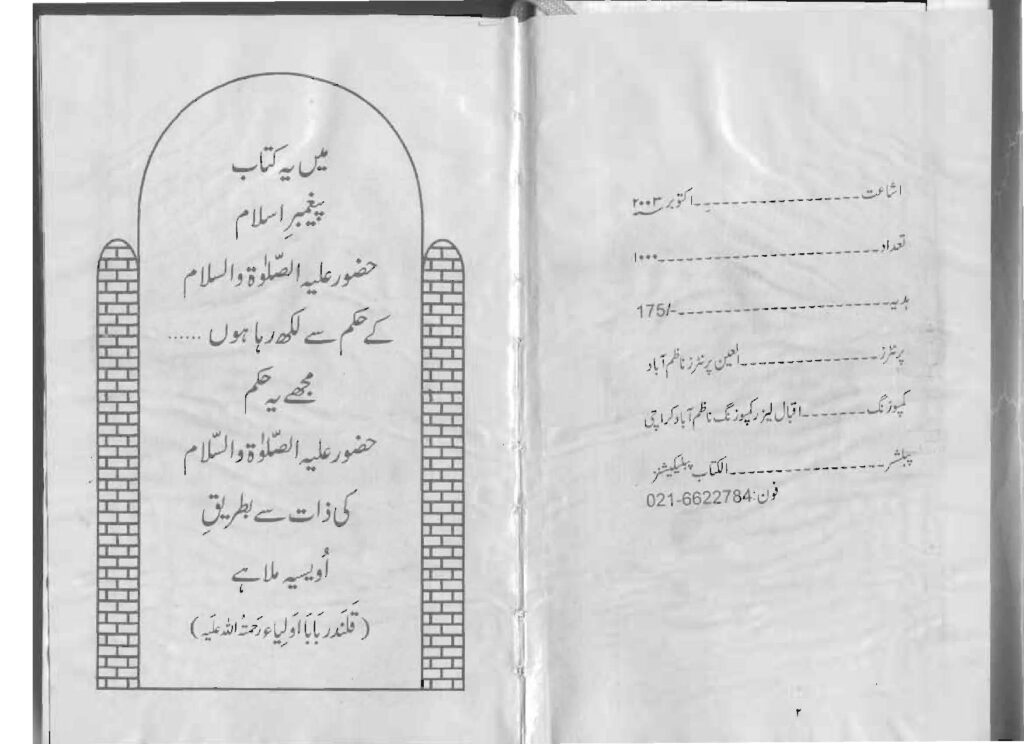 اشاعت ۔۔۔۔۔۔۔۔۔۔۔۔۔۔۔۔۔۔۔۔۔ اکتوبر ۲۰۰۳
تعداد ۔۔۔۔۔۔۔۔۔۔۔۔۔۔۔۔۔۔۔۔۔۔۔۔۔۔۔ ۱۰۰۰
ہدیہ ۔۔۔۔۔۔۔۔۔۔۔۔۔۔۔۔۔۔۔۔۔۔۔۔۔ 175/-
پرنٹرز ۔۔۔۔۔۔۔۔۔۔۔۔۔۔۔۔ العین پرنٹرز ناظم آباد
کمپوزنگ ۔۔۔۔۔۔۔ اقبال لیزر کمپوزنگ ناظم آباد کراچی
پبلشر ۔۔۔۔۔۔۔۔۔۔۔۔۔۔۔۔۔ الکتاب پبلیکیشنز
فون: 021-6622784
۲
میں یہ کتاب
پیغمبرِ اسلام
حضور علیہ الصّلوٰۃ والسلام
کے حکم سے لکھ رہا ہوں ......
مجھے یہ حکم
حضور علیہ الصّلوٰۃ والسّلام
کی ذات سے بطریقِ
اُویسیہ ملا ہے
(قَلَندر بَابَا اَولِیاء رَحمتُ اللہ عَلَیہ)